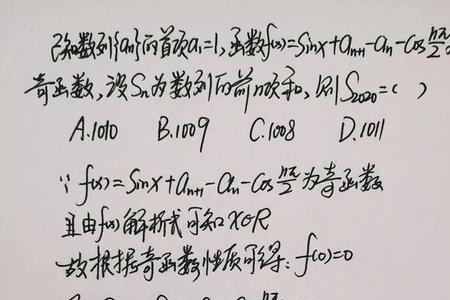 已知数列{an}的首项a₁=1,函数f(x)=Sinx+an+1-an-Cos nπ/2为
奇函数,设Sn为数列的前n项和,则S2020=( )
A.1010 B.1009 C.1008 D.1011
∵f(x)=Sinx+an+1-an-Cos nπ/2为奇函数
且由f(x)解析式可知x∈R
故根据奇函数性质可得:f(0)=0